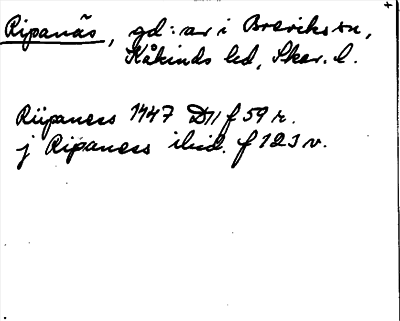 Ripanäs, gd: ar i Breviks sn,
Kåkinds hd, Skar. l.
Riipaness 1447 D11 f 59 r.
j Ripaness ibid. f 123 v.